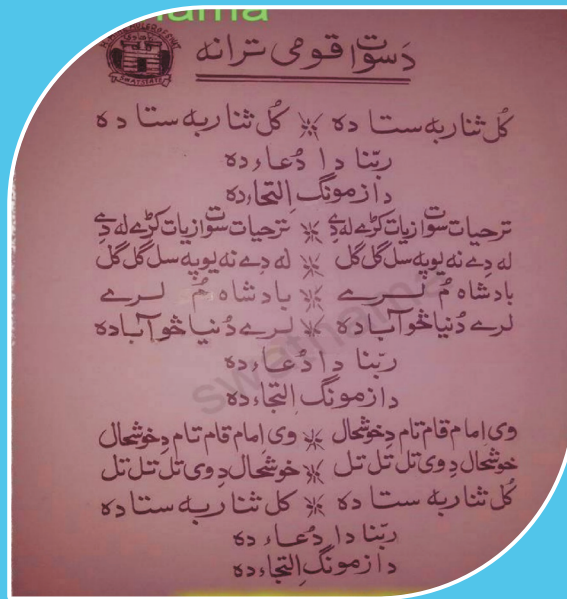 nama
دَسوات قومی ترانه
SWAT STATE
کُل ثنا ربه ستا ده ※ کُل ثنا ربه ستا ده
ربّنا دا دُعاء ده
دا زمونگ اِلتجاء ده
ترحیات سوات زیات کړے له دِے ※ ترحیات سوات زیات کړے له دِے
له دِے نه یو په سل گل گل ※ له دِے نه یو په سل گل گل
بادشاه مُ لرے ※ بادشاه مُ لرے
لرے دُنیا څو آباده ※ لرے دُنیا څو آباده
ربّنا دا دُعاء ده
دا زمونگ اِلتجاء ده
وی اِمام قام تام دِ خوشحال ※ وی اِمام قام تام دِ خوشحال
خوشحال دِ وی تل تل تل ※ خوشحال دِ وی تل تل تل
کُل ثنا ربه ستا ده ※ کل ثنا ربه ستا ده
ربّنا دا دُعاء ده
دا زمونگ اِلتجاء ده
swatnama